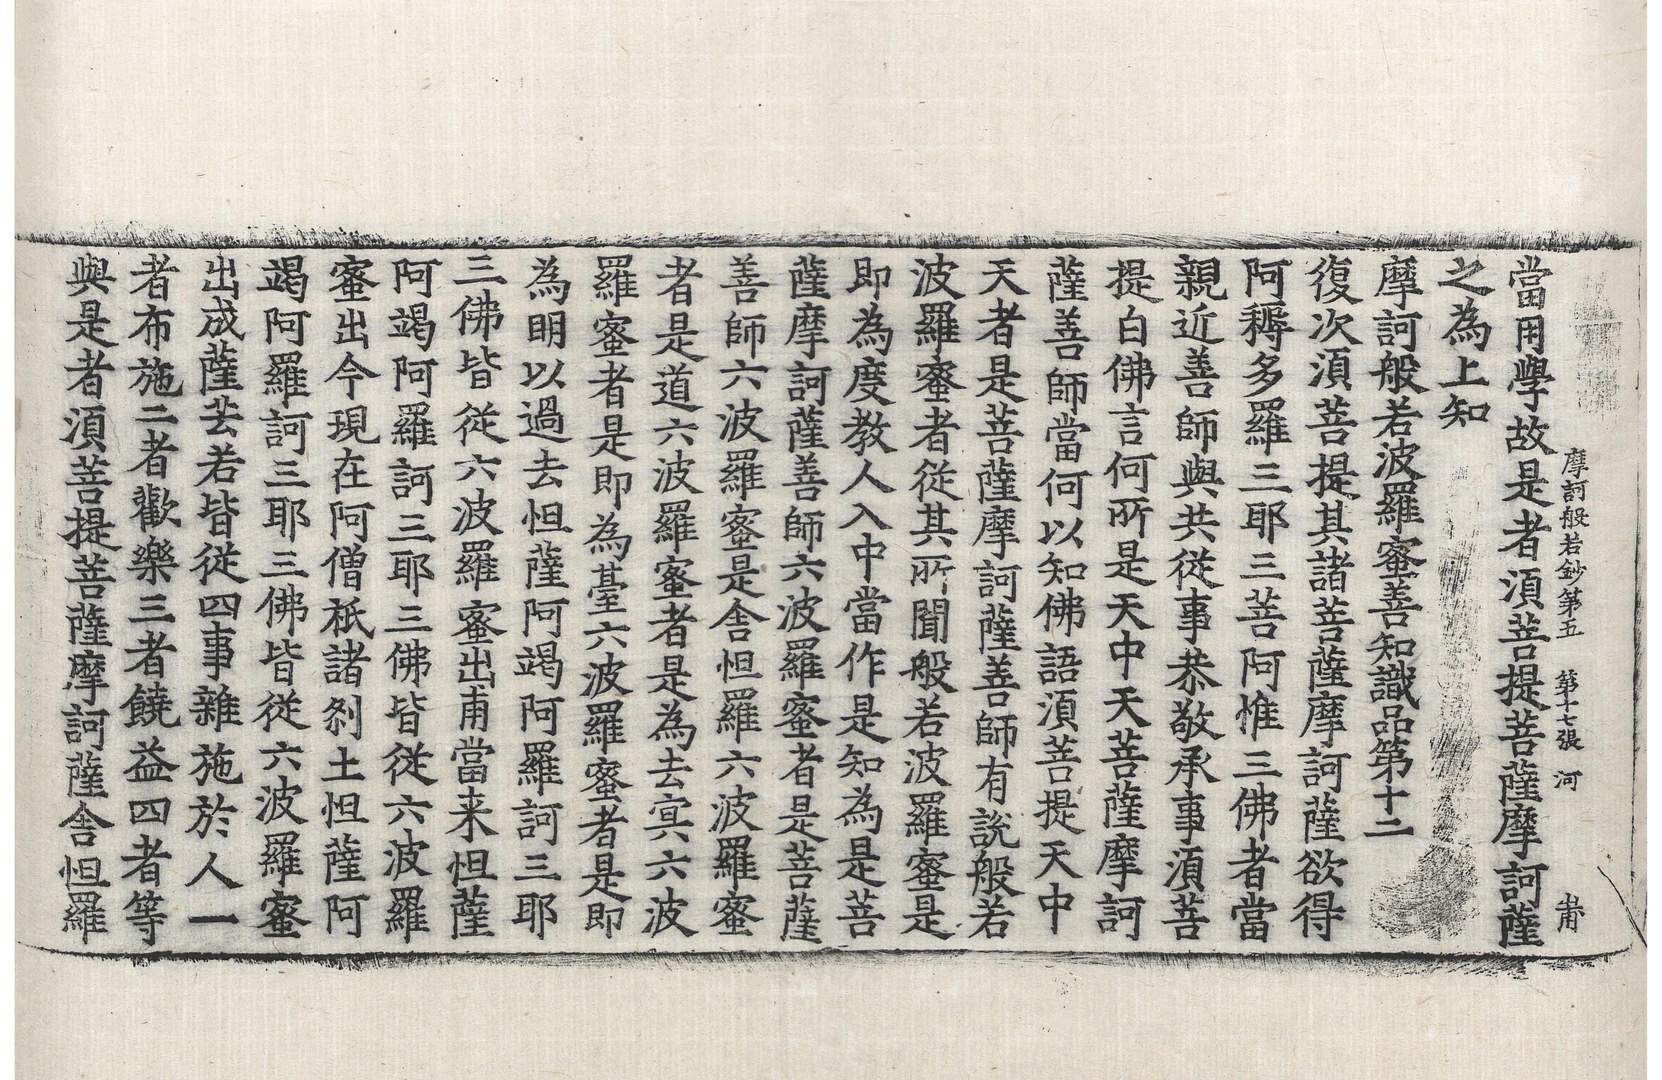 摩訶般若鈔第五　第十七張　河
當用學故是者須菩提菩薩摩訶薩
之為上知
摩訶般若波羅蜜善知識品第十二
復次須菩提其諸菩薩摩訶薩欲得
阿耨多羅三耶三菩阿惟三佛者當
親近善師與共從事恭敬承事須菩
提白佛言何所是天中天菩薩摩訶
薩善師當何以知佛語須菩提天中
天者是菩薩摩訶薩善師有說般若
波羅蜜者從其所聞般若波羅蜜是
即為度教人入中當作是知為是菩
薩摩訶薩善師六波羅蜜者是菩薩
善師六波羅蜜是舎怛羅六波羅蜜
者是道六波羅蜜者是為去冥六波
羅蜜者是即為臺六波羅蜜者是即
為明以過去怛薩阿竭阿羅訶三耶
三佛皆從六波羅蜜出甫當来怛薩
阿竭阿羅訶三耶三佛皆從六波羅
蜜出今現在阿僧祇諸剎土怛薩阿
竭阿羅訶三耶三佛皆從六波羅蜜
出成薩芸若皆從四事雜施於人一
者布施二者歡樂三者饒益四者等
與是者須菩提菩薩摩訶薩舎怛羅